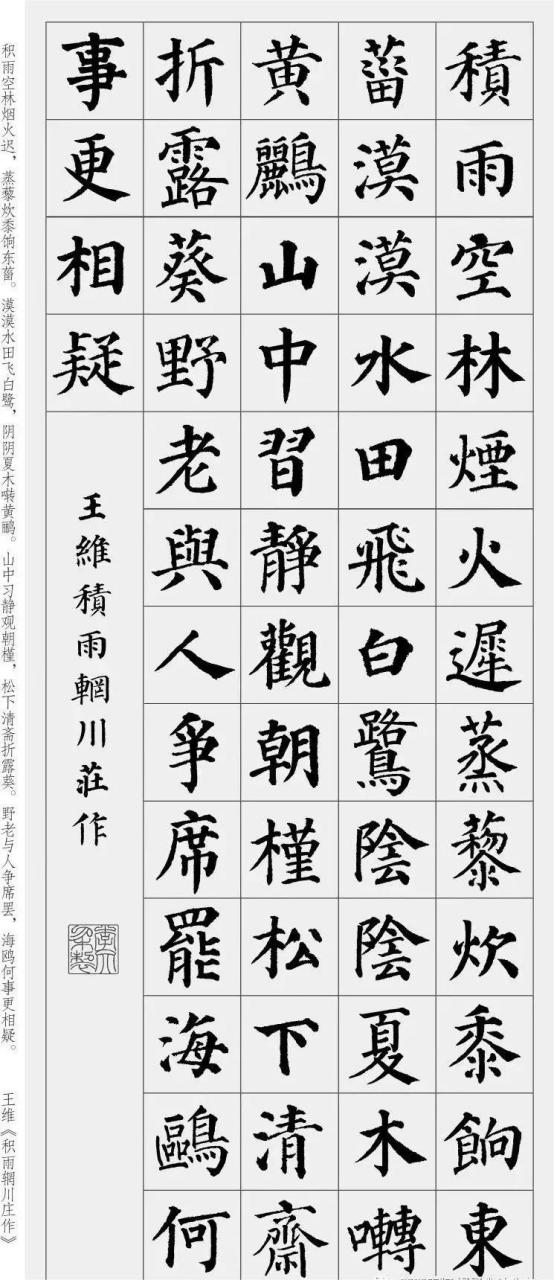 積雨空林煙火遲蒸藜炊黍餉東
菑漠漠水田飛白鷺陰陰夏木囀
黄鸝山中習靜觀朝槿松下清齋
折露葵野老與人爭席罷海鷗何
事更相疑
王維積雨輞川莊作
积雨空林烟火迟，蒸藜炊黍饷东菑。漠漠水田飞白鹭，阴阴夏木啭黄鹂。山中习静观朝槿，松下清斋折露葵。野老与人争席罢，海鸥何事更相疑。 王维《积雨辋川庄作》